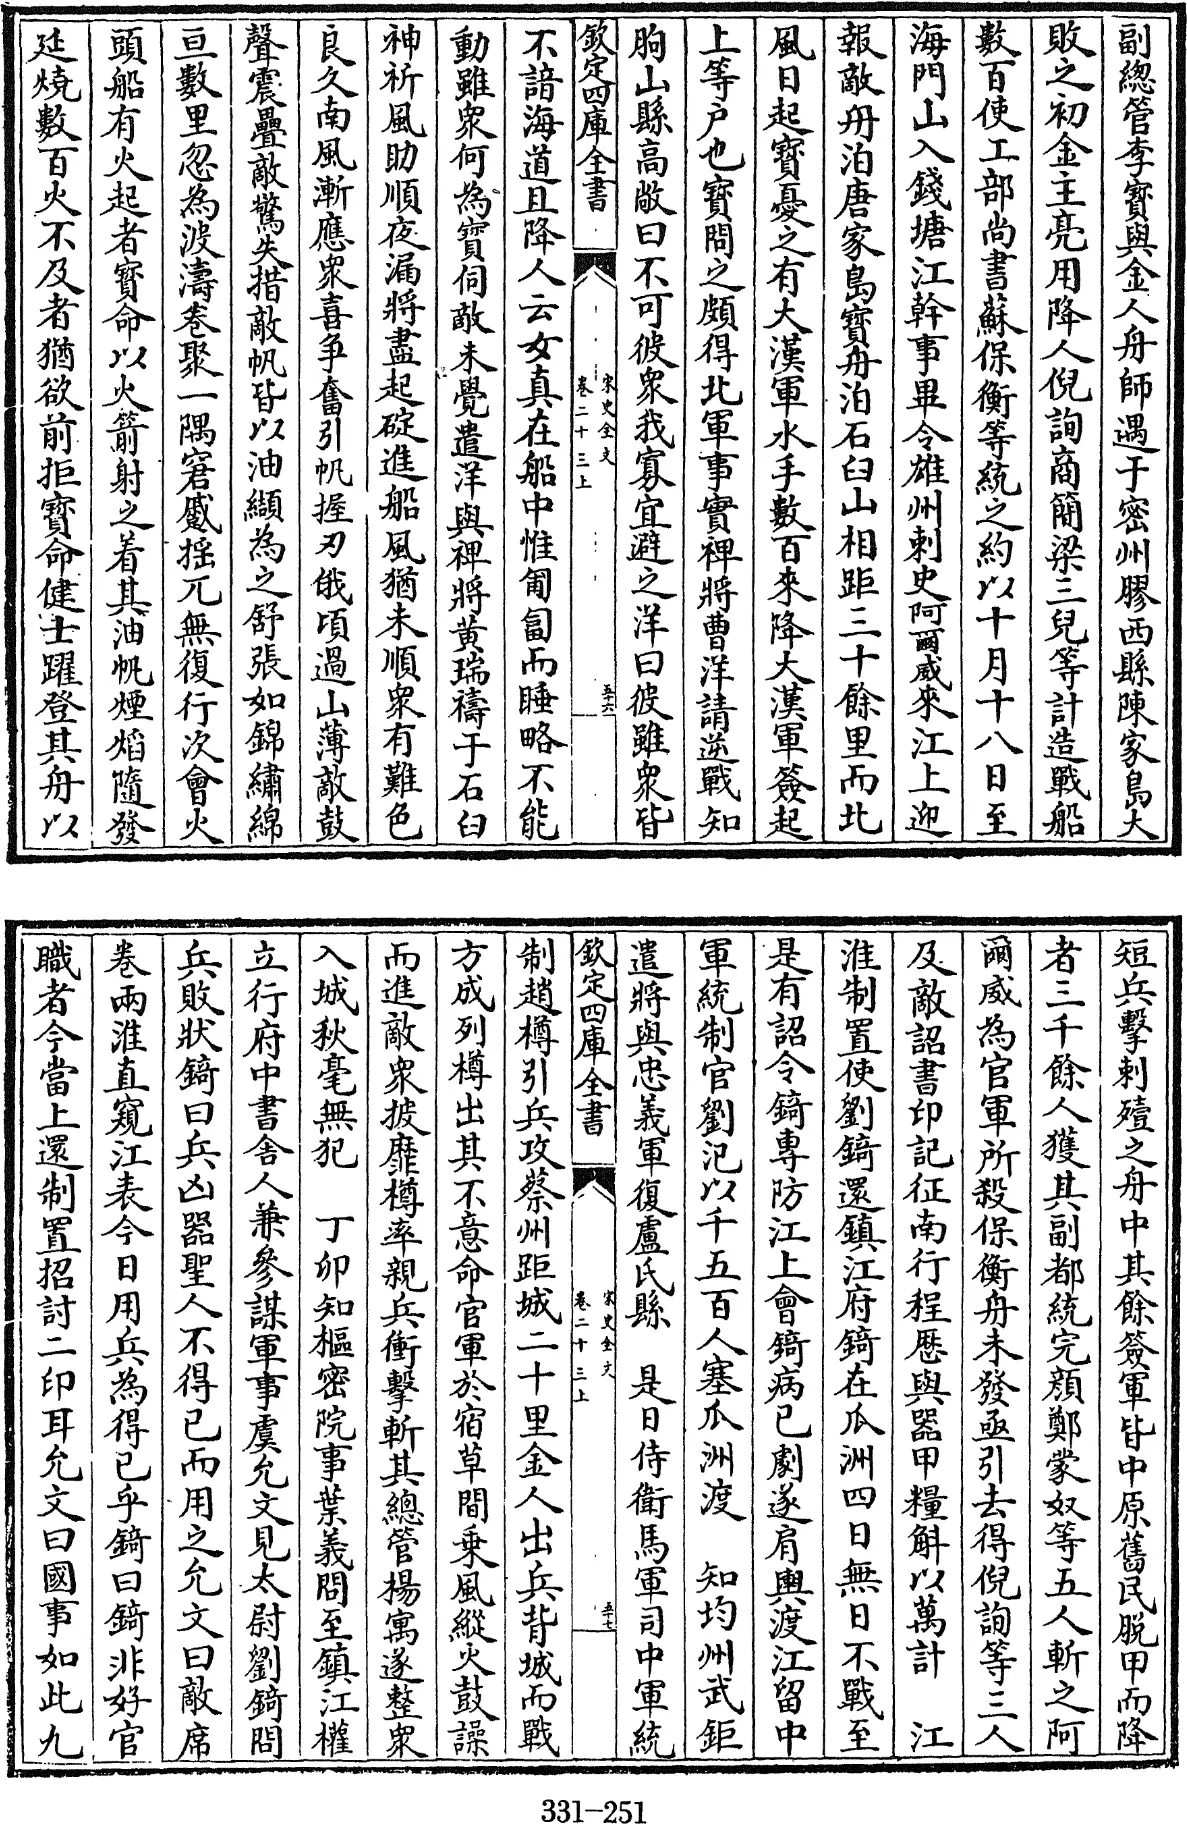 副總管李寳與金人舟師遇于密州膠西縣陳家島大
敗之初金主亮用降人倪詢商簡梁三兒等計造戰船
數百使工部尚書蘇保衡等統之約以十月十八日至
海門山入錢塘江幹事畢令雄州刺史阿爾威來江上迎
報敵舟泊唐家島寳舟泊石臼山相距三十餘里而北
風日起寳憂之有大漢軍水手數百來降大漢軍簽起
上等户也寳問之頗得北軍事實禆將曹洋請逆戰知
朐山縣高敞曰不可彼衆我寡宜避之洋曰彼雖衆皆
欽定四庫全書
宋史全文
卷二十三上
五十六
不諳海道且降人云女真在船中惟匍匐而睡略不能
動雖衆何為寳伺敵未覺遣洋與禆將黄瑞禱于石臼
神祈風助順夜漏將盡起碇進船風猶未順衆有難色
良久南風漸應衆喜争奮引帆握刃俄頃過山薄敵鼓
聲震疊敵驚失措敵帆皆以油纈為之舒張如錦繡綿
亘數里忽為波濤卷聚一隅窘蹙揺兀無復行次會火
頭船有火起者寳命以火箭射之着其油帆煙焰隨發
延燒數百火不及者猶欲前拒寳命健士躍登其舟以
短兵擊刺殪之舟中其餘簽軍皆中原舊民脱甲而降
者三千餘人獲其副都統完顔鄭蒙奴等五人斬之阿
爾威為官軍所殺保衡舟未發亟引去得倪詢等三人
及敵詔書印記征南行程歷與器甲糧斛以萬計　江
淮制置使劉錡還鎮江府錡在瓜洲四日無日不戰至
是有詔令錡專防江上會錡病已劇遂肩輿渡江留中
軍統制官劉汜以千五百人塞瓜洲渡　知均州武鉅
遣將與忠義軍復盧氏縣　是日侍衛馬軍司中軍統
欽定四庫全書
宋史全文
卷二十三上
五十七
制趙樽引兵攻蔡州距城二十里金人出兵背城而戰
方成列樽出其不意命官軍於宿草間乗風縱火鼓譟
而進敵衆披靡樽率親兵衝擊斬其總管楊寓遂整衆
入城秋毫無犯　丁卯知樞密院事葉義問至鎮江權
立行府中書舍人兼參謀軍事虞允文見太尉劉錡問
兵敗狀錡曰兵凶器聖人不得已而用之允文曰敵席
卷兩淮直窺江表今日用兵為得已乎錡曰錡非好官
職者今當上還制置招討二印耳允文曰國事如此九
331-251